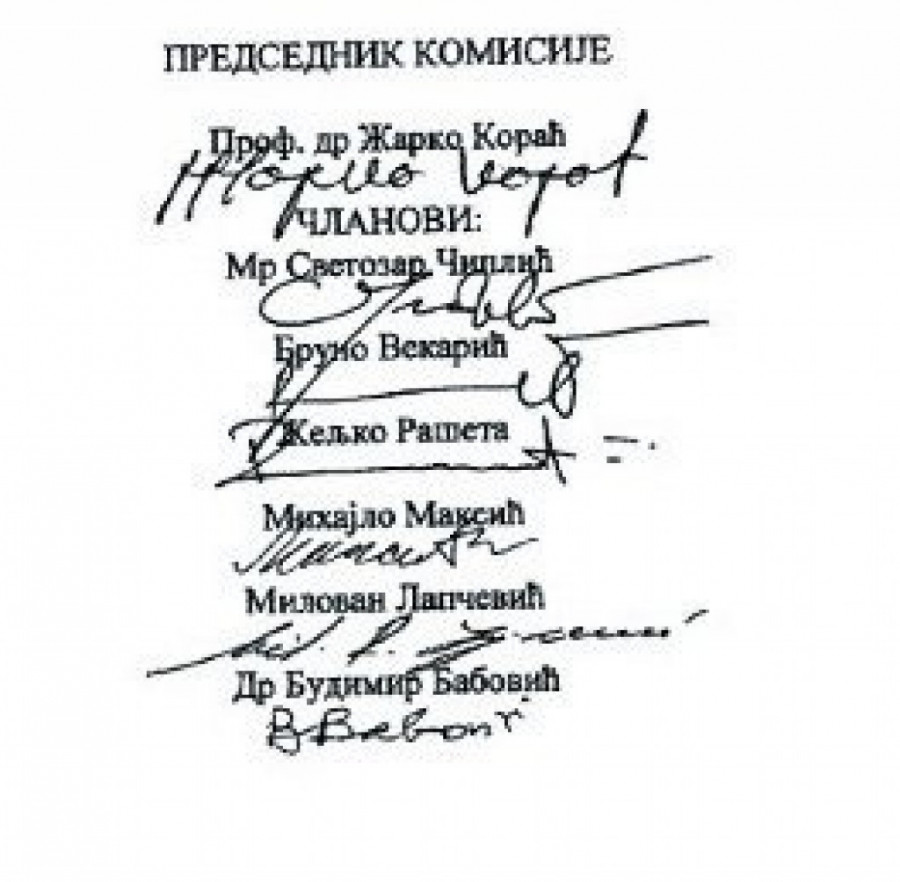 ПРЕДСЕДНИК КОМИСИЈЕ
Проф. др Жарко Кораћ
ЧЛАНОВИ:
Мр Светозар Чиплић
Бруно Векарић
Жељко Рашета
Михајло Максић
Милован Лапчевић
Др Будимир Бабовић